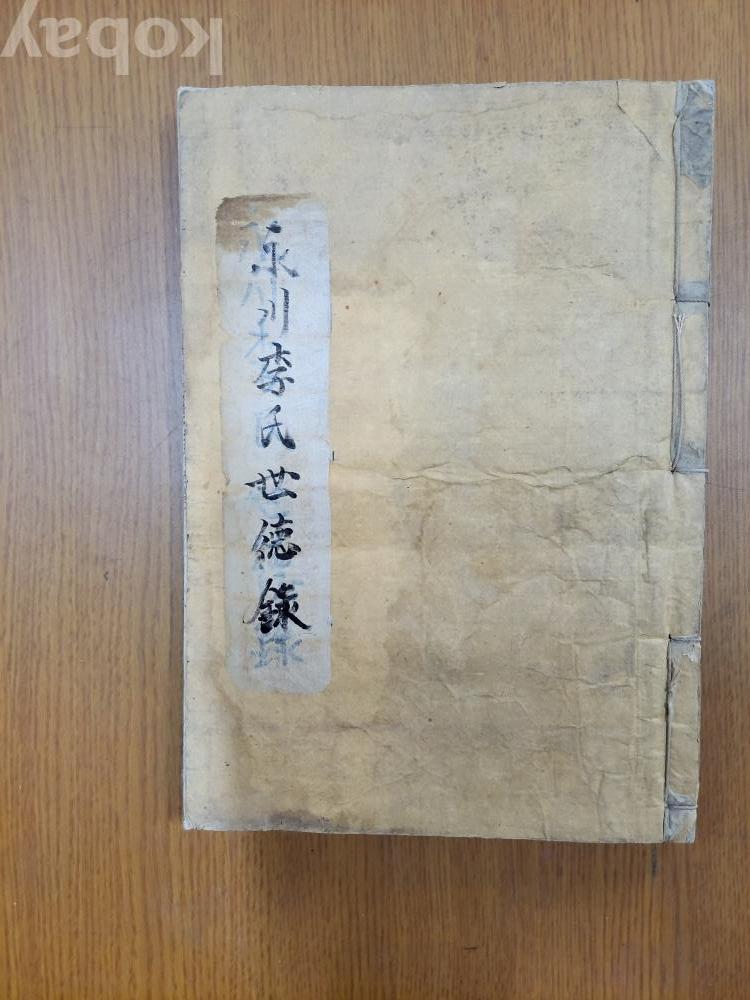 kobay
永川李氏世德錄